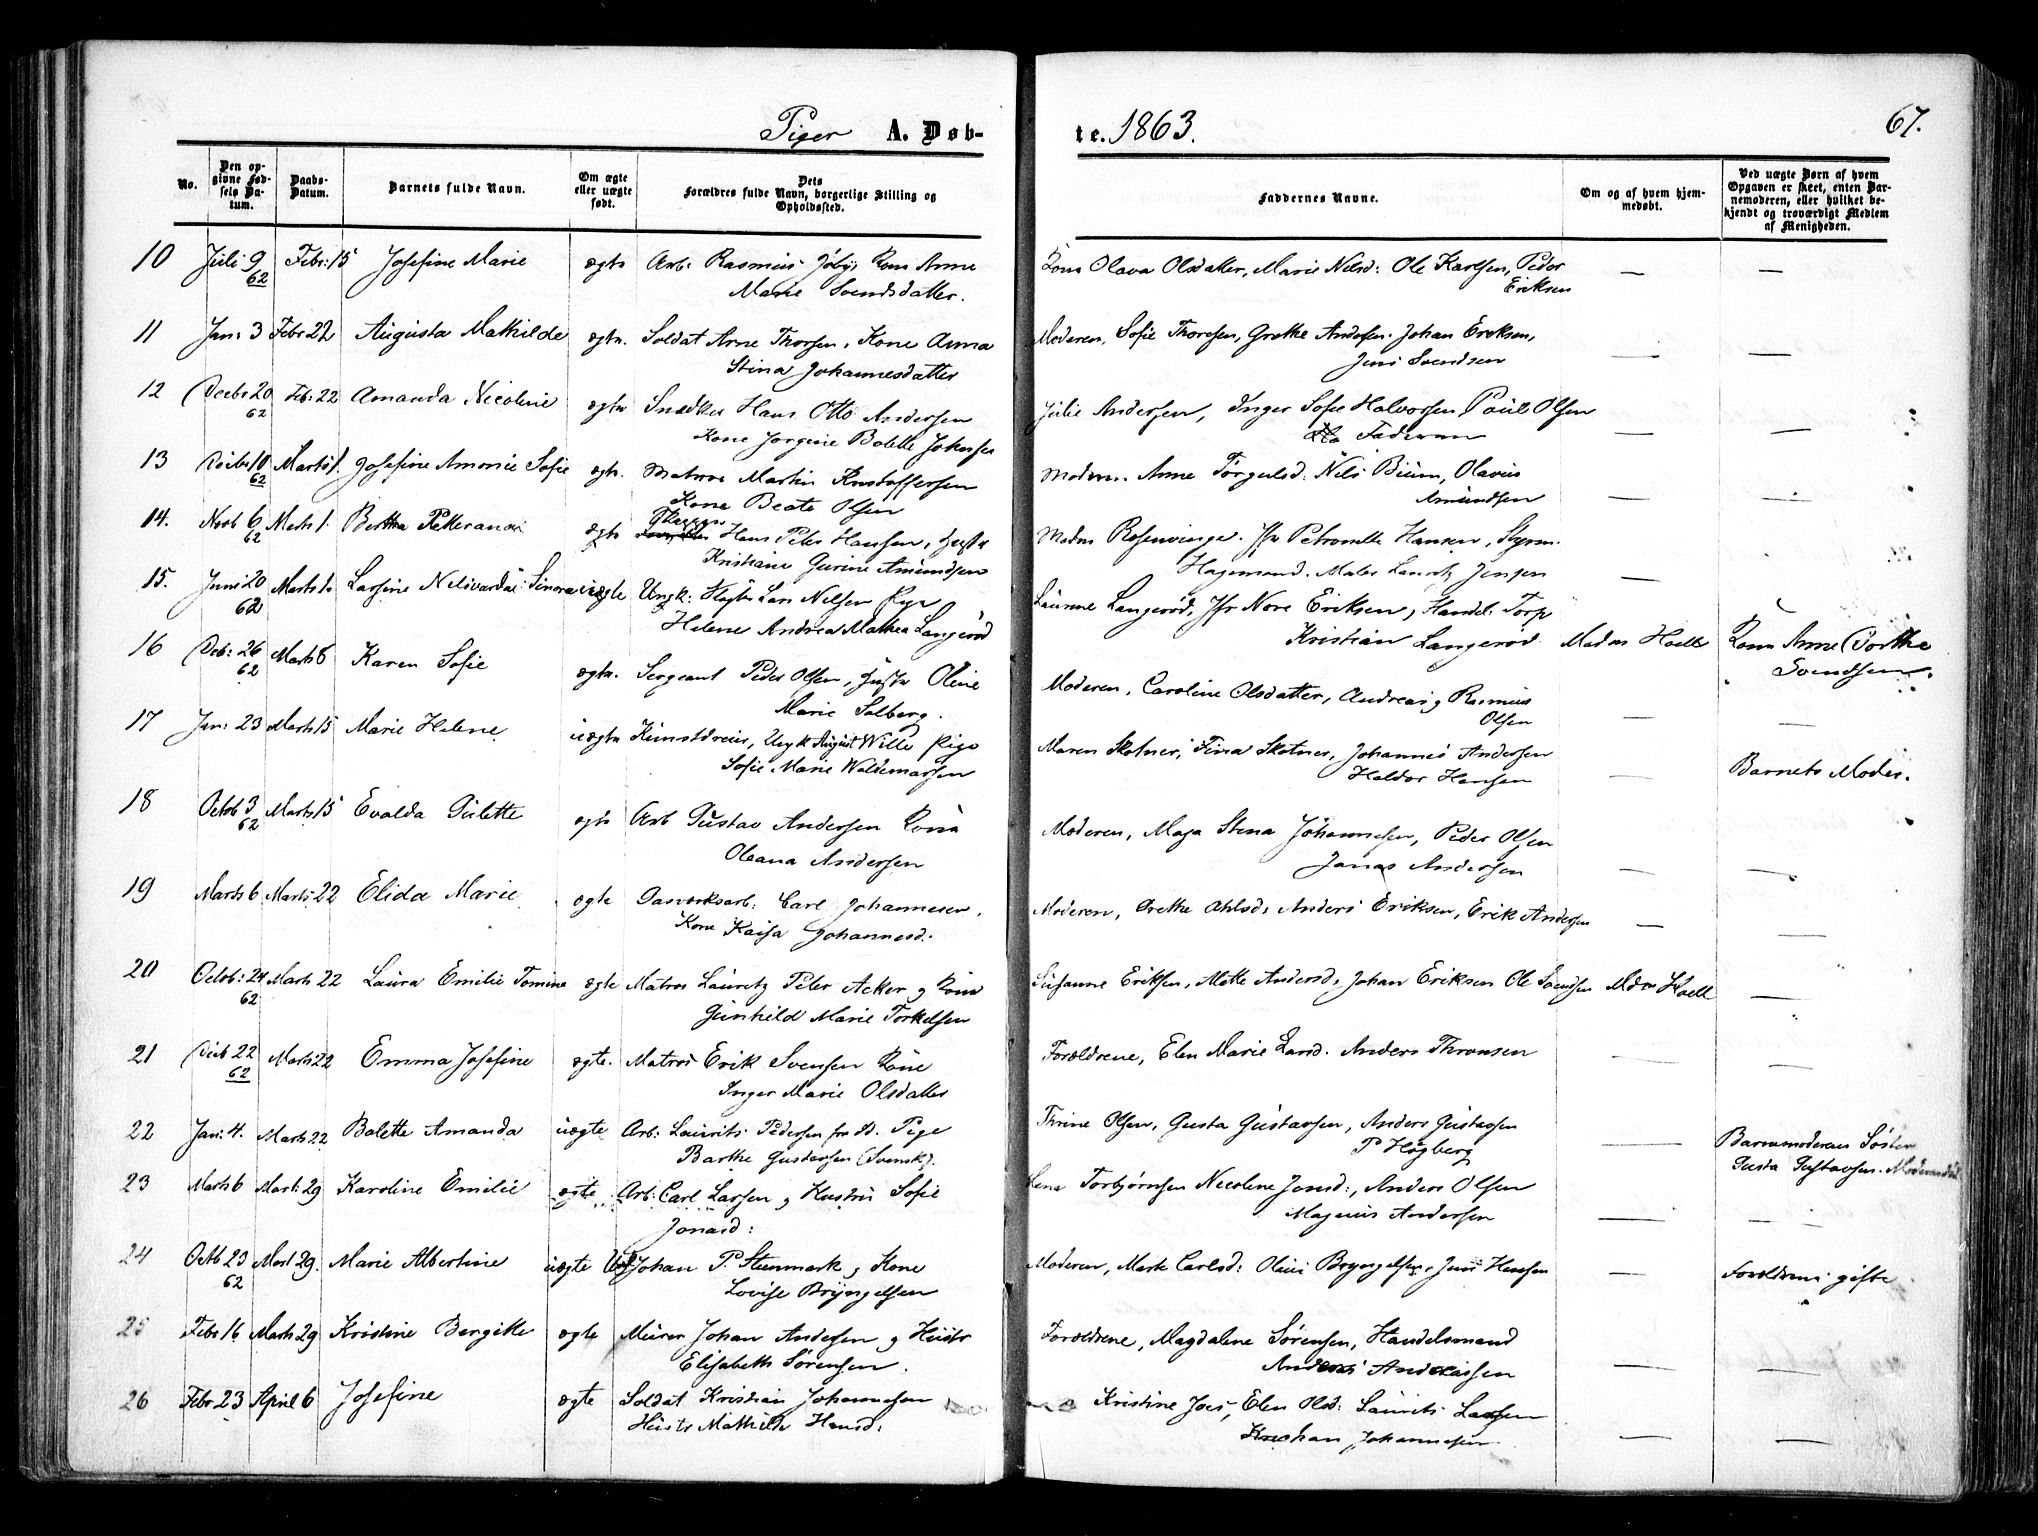 Piger A. Døb-
te. 1863.
67.
No.
Den op-
givne Fød-
sels Da-
tum.
Daabs-
Datum.
Barnets fulde Navn.
Om ægte
eller uægte
født.
Dets
Forældres fulde Navn, borgerlige Stilling og
Opholdssted.
Faddernes Navne.
Om og af hvem hjem-
medøbt.
Ved uægte Børn af hvem
Opgaven er skeet, enten Bar-
nemoderen, eller hvilket be-
kjendt og troværdigt Medlem
af Menigheden.
10 Juli 9 Febr: 15 Josefine Marie ægte Arb: Rasmus Kone Anne
62 Marie Svendsdatter.
Kone Olava Olsdatter, Marie Nilsd: Ole Karlsen, Peder
Eriksen
11 Jan: 3 Febr 22 Augusta Mathilde ægte. Soldat Arne Thorsen, Kone Anna
Stina Johannesdatter
Moderen, Sofie Thoresen, Grethe Andersen. Johan Eriksen,
Jens Svendsen
12 Decbr 20 Feb: 22 Amanda Nicoline ægte Snedker Hans Otto Andersen
62 Kone Jorgine Bolette Johnsen
Julie Andersen, Inger Sofie Halvorsen, Poul Olsen
Faderen
13 Decbr 10 Marts 1. Josefine Amonie Sofie ægte. Matros Martin Kristoffersen
62 Kone Beate Olsen
Moderen. Anne Torgulsd: Nils Biüm, Olavus
Amundsen
14. Novb 6 Marts 1. Berthe Petterana ægte Hans Peter Hansen, Hustr
62 Kristiane Gurine Amundsen
Madm Rosenvinge. Jfr Petronelle Hansen, Styrm.
Hagemand. Maler Lauritz Jensen
15. Juni 20 Marts 1. Larsine Nelivarda Sinora uægte Ungk: Lars Nilsen Pige
62 Helene Andrea Mathea Langerød
Laurine Langerød, Jfr Nore Eriksen, Handel: Torp
Kristian Langerød. Madm Hoell Kone Anne Dorthe
Svendsen.
16 Decb: 26 Marts 8 Karen Sofie ægte. Sergeant Peder Olsen, Hustr Oline
62 Marie Solberg.
Moderen, Caroline Olsdatter, Andreas og Rasmus
Olsen
17 Jan: 23 Marts 15 Marie Helene uægte Kunstdreier, Ungk August Wille Pige
Sofie Marie Waldemarsen
Maren Skotner, Tina Skotner, Johannes Andersen
Haldor Hansen Barnets Moder.
18 Octob 3 Marts 15 Evalda Gulette ægte Arb Gustav Andersen Kone
62 Oleana Andersen
Moderen, Maja Stena Johannesen, Peder Olsen
Jonas Andersen
19 Marts 6 Marts 22 Elida Marie ægte Gasværksarb: Carl Johannesen,
Kone Kaisa Johannesd.
Moderen, Grethe Ahlsd, Anders Eriksen, Erik Andersen
20 Octob: 24 Marts 22 Laura Emilie Tomine ægte Matros Lauritz Peter Acker og Kone
62 Gunhild Marie Torkelsen
Susanne Eriksen, Mette Andersd, Johan Eriksen Ole Svendsen Mdm Hoell
21 Decb 22 Marts 22 Emma Josefine ægte. Matros Erik Svensen Kone
62 Inger Marie Olsdatter
Forældrene, Elen Marie Larsd. Anders Thronsen
22 Jan: 4. Marts 22 Bolette Amanda uægte Arb: Laurits Pedersen fra Pige
Barthe Gustavsen (Svensk).
Thrine Olsen, Gusta Gustavsen, Anders Gustavsen
P Høgberg Barnemoderens Søster
Gusta Gustavsen.
23 Marts 6 Marts 29 Karoline Emilie ægte Arb: Carl Larsen og Hustru Sofie
Jonasd:
Lena Torbjørnsen Nicoline Jonsd:, Anders Olsen
Magnus Andersen
24 Octb 23 Mart 29. Marie Albertine uægte Johan P. Steenmark og Kone
62 Lovise Bryngelsen
Moderen, Marte Carlsd: Oline Bryngelsen, Jens Hansen Forældrene gifte
25 Febr 16 Marts 29 Kristine Bergitte ægte Murer Johan Andersen og Hustr
Elisabeth Sørensen.
Forældrene, Magdalene Sørensen, Handelsmand
Anders Andreassen
26 Febr 23 April 6 Josefine ægte Soldat Kristian Johannesen
Hustr Mathilde Hansd:
Kristine Joes, Elen Olsd: Laurits Larsen
Johannesen